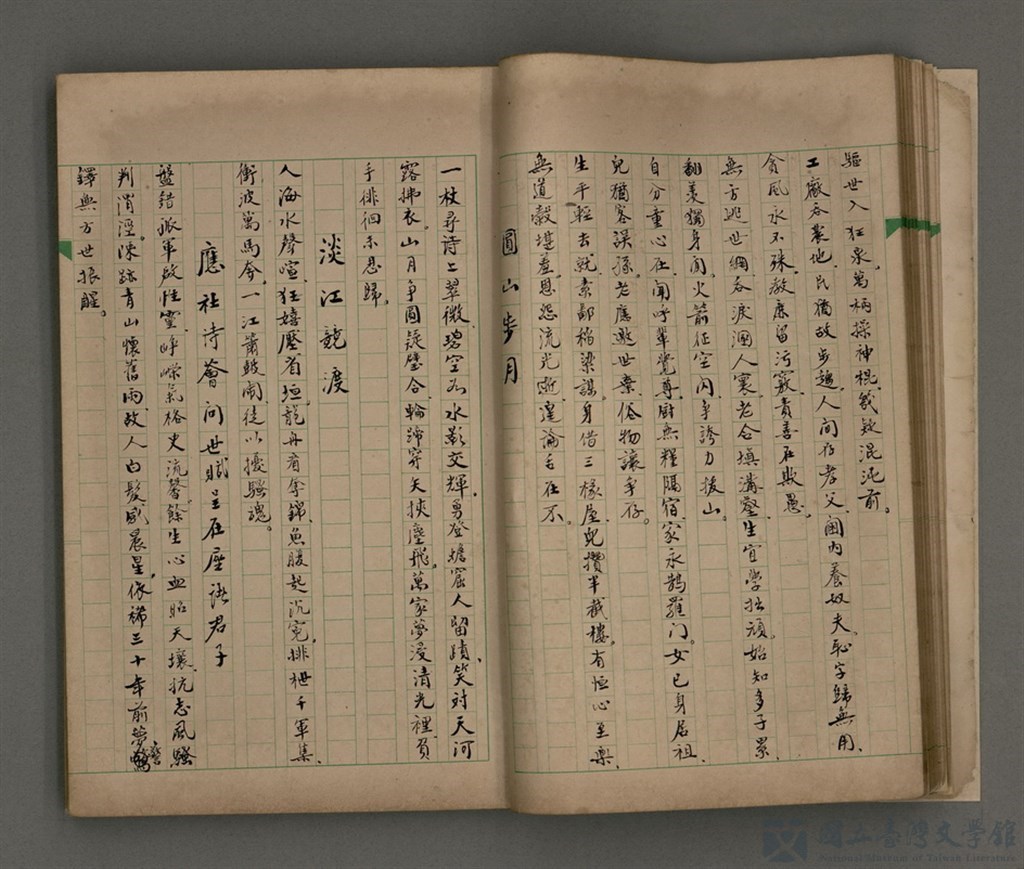 驅世入狂泉。萬柄操神棍。幾欲混沌前。
工廠吞農地。民猶故步趨。人間存孝父。閫內養奴夫。恥字歸無用。
貪風永不殊。教康留污竅。責善在欺愚。
無方逃世網。吞淚涸人寰。老合填溝壑。生宜學拙頑。始知多子累。
翻羨獨身閒。火箭征空闪。爭誇力拔山。
自分重心在。聞呼輩覺尊。厨無糧隔宿。家永鵲羅門。女已身居祖。
兒猶客誤孫。老應邀世棄。俗物讓爭存。
生平輕去就。素鄙稻粱謀。身借三椽屋。兒攢半截樓。有恒心至樂。
無道穀堪羞。恩怨流光逝。遑論毛在不。
圓山步月
一杖尋詩上翠微。碧空如水影交輝。勇登蟾窟人留蹟。笑對天河
露拂衣。山月爭圓疑璧合。輪蹄穿矢挾塵飛。萬家夢浸清光裡。負
手徘徊未思歸。
淡江競渡
人海水聲喧。狂嬉壓省垣。龍舟看奪錦。魚腹起沉冤。排枻千軍集。
衝波萬馬奔。一江簫鼓鬧。徒以擾騷魂。
應社詩薈問世賦呈在座諸君子
盤錯孤軍啟性靈。崢嶸氣格史流馨。餘生心血昭天壤。抗志風騷
判渭涇。陳跡青山懷舊雨。故人白髮感晨星。依稀三十年前夢。磨
鐸無方世振醒。
國立臺灣文學館
National Museum of Taiwan Literature